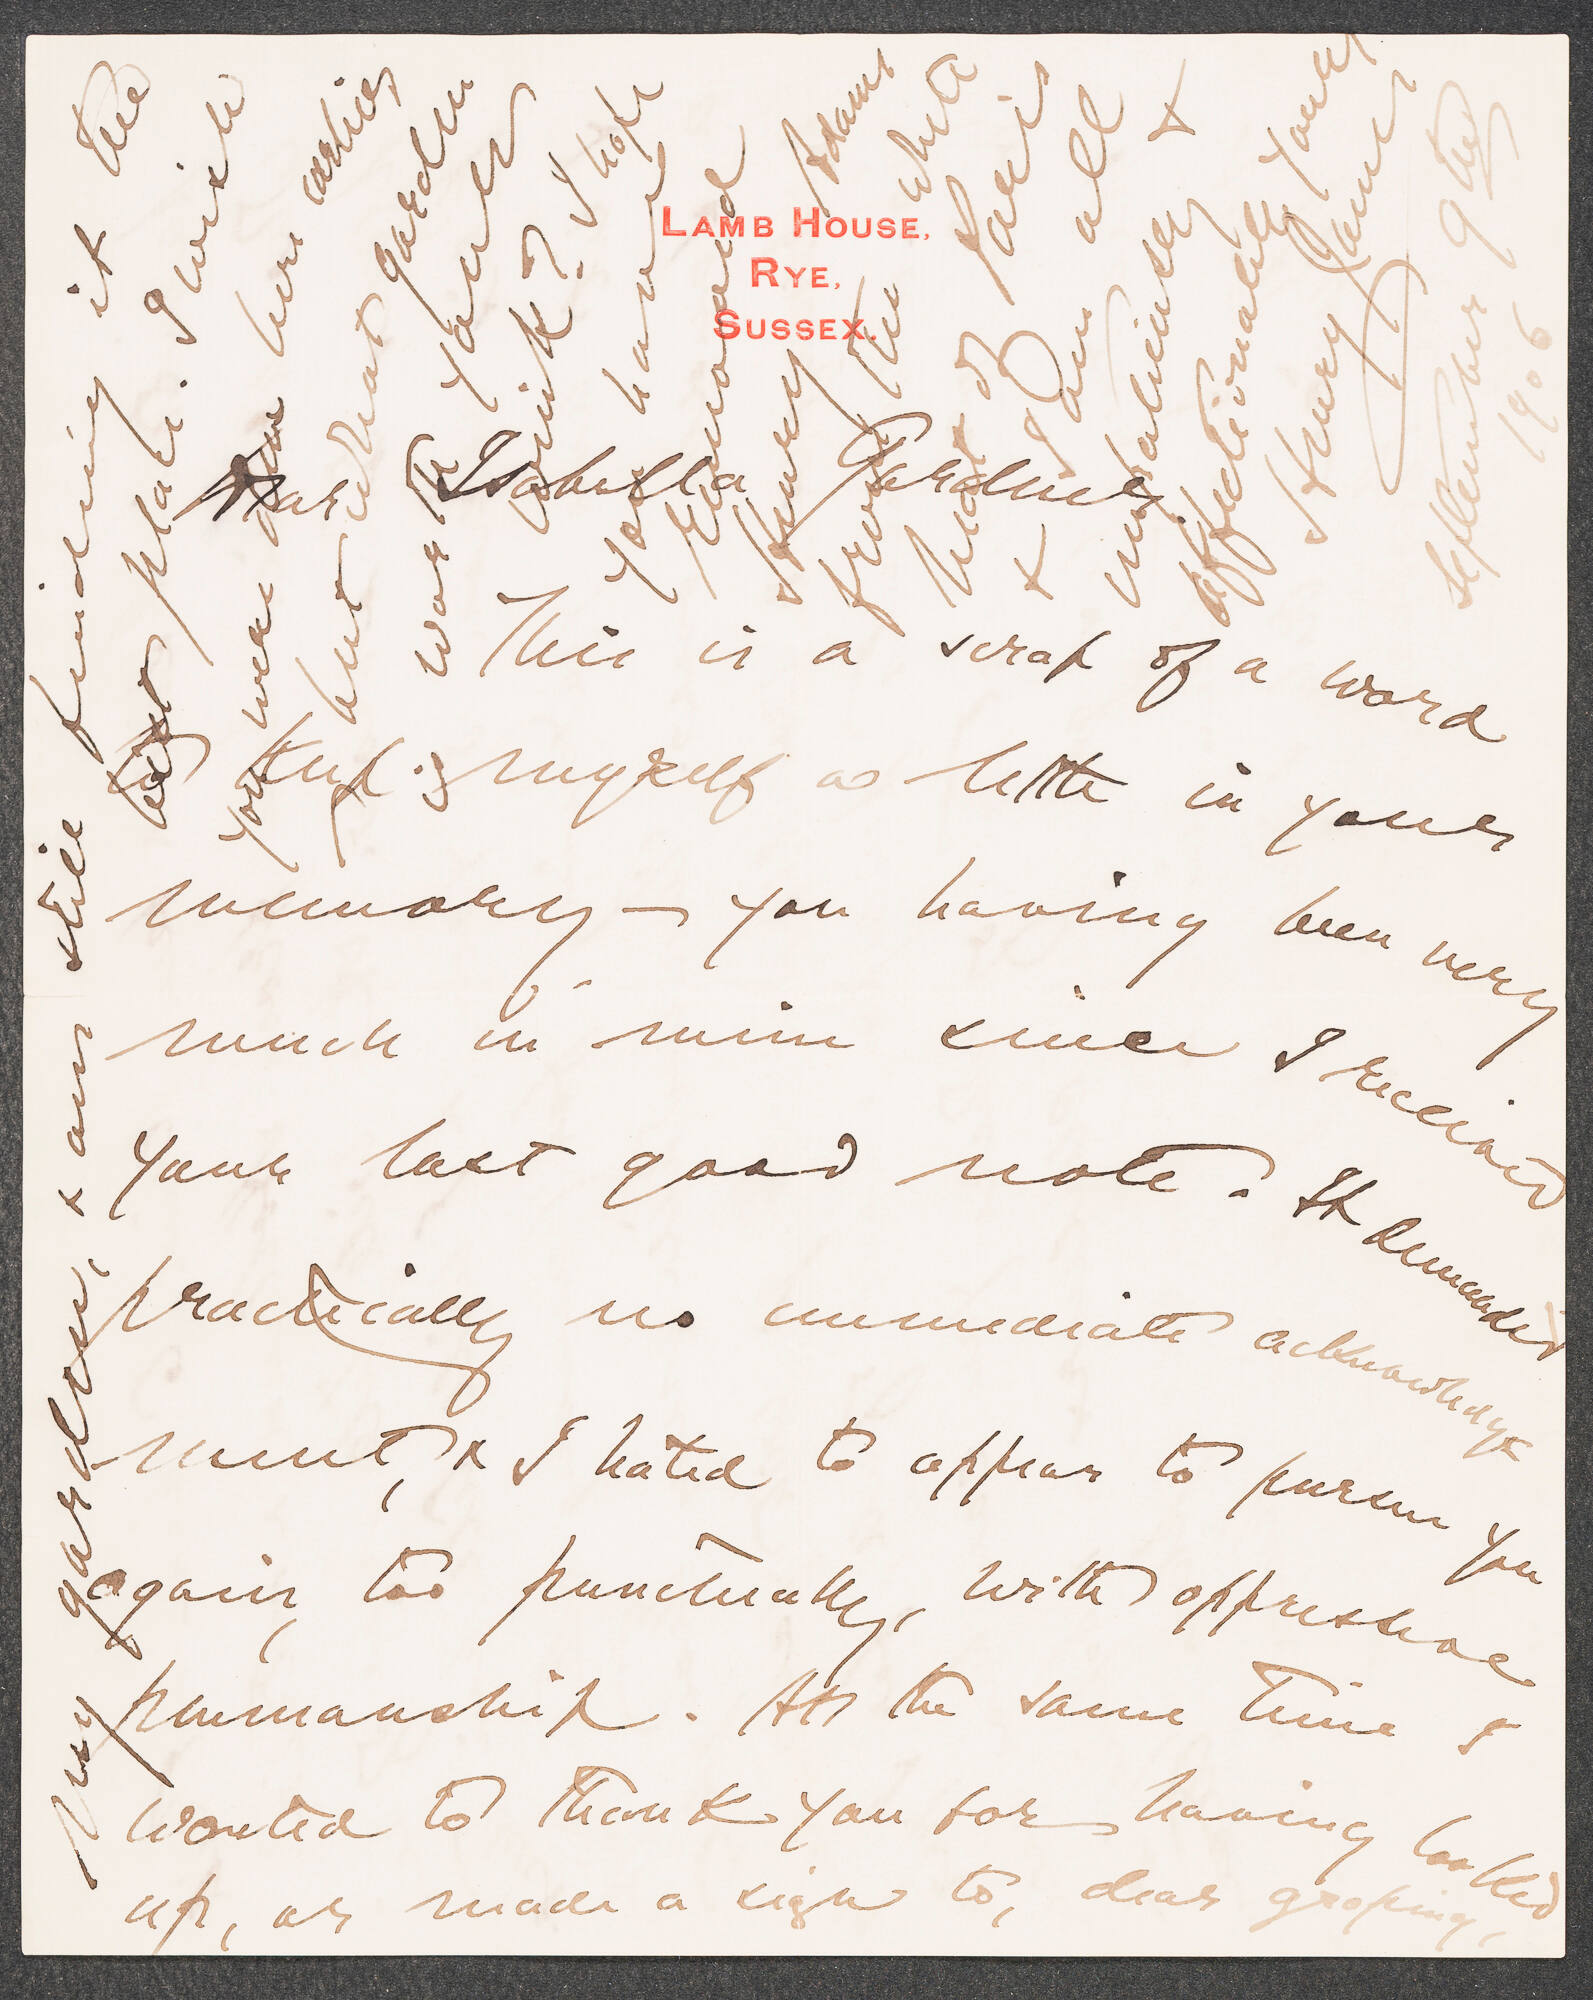 LAMB HOUSE,
RYE,
SUSSEX.
September 9th
1906
Dear Isabella Gardner
This is a scrap of a word
to keep myself a little in your
memory — you having been very
much in mine since I received
your last good note. It demanded
practically no immediate acknowledge-
ment, & I hated to appear to pursue you
again, too punctually, with oppressive
penmanship. At the same time I
wanted to thank you for having looked
up, or made a sign to, dear groping,
my garden, & am still finding it the
best place. I wish
you were here
but what garden
was to your
You have
Henry Adams
from the white
heat of Paris
& I am all &
unalienably
affectionately yours
Henry James